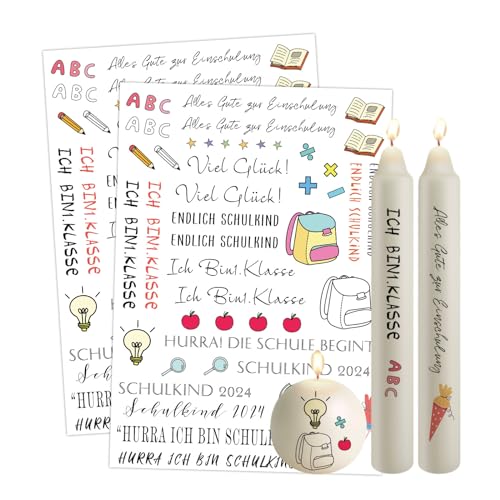 ABC
Alles Gute zur Einschulung
ABC
ICH BIN1.KLASSE
ICH BIN1.KLASSE
SCHULKIND
Schulkind
"HURRA ICH
HURRA ICH
ABC
Alles Gute zur Einschulung
ABC
Alles Gute zur Einschulung
Viel Glück!
Viel Glück!
ENDLICH SCHULKIND
ENDLICH SCHULKIND
ICH BIN1.KLASSE
ICH BIN1.KLASSE
ENDLICH SCHULKIND
ENDLICH
Ich Bin1.Klasse
Ich Bin1.Klasse
HURRA! DIE SCHULE BEGINT
SCHULKIND 2024
SCHULKIND 2024
Schulkind 2024
"HURRA ICH BIN SCHUL
HURRA ICH BIN SCHULKIN
ICH BIN1.KLASSE ABC
Alles Gute zur Einschulung